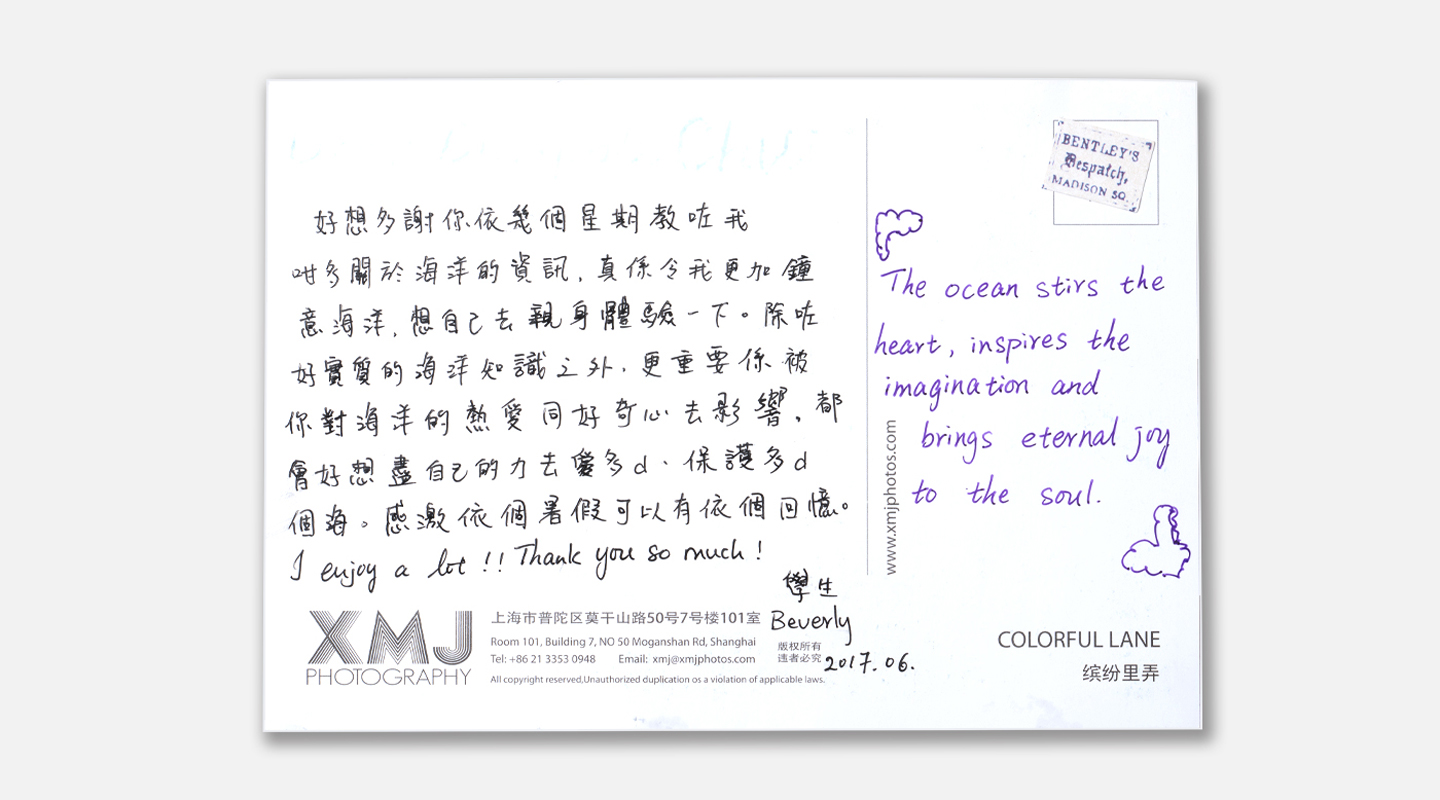 好想多謝你依幾個星期教咗我
咁多關於海洋的資訊,真係令我更加鐘
意海洋,想自己去親身體驗一下。除咗
好實質的海洋知識之外,更重要係被
你對海洋的熱愛同好奇心去影響,都
會好想盡自己的力去愛多d、保護多d
個海。感激依個暑假可以有依個回憶。
I enjoy a lot!! Thank you so much!
學生
Beverly
2017.06.
XMJ
PHOTOGRAPHY
上海市普陀区莫干山路50号7号楼101室
Room 101, Building 7, NO 50 Moganshan Rd, Shanghai
Tel: +86 21 3353 0948 Email: xmj@xmjphotos.com
All copyright reserved,Unauthorized duplication os a violation of applicable laws.
版权所有
违者必究
www.xmjphotos.com
BENTLEY'S
Despatch,
MADISON SQ.
The ocean stirs the
heart, inspires the
imagination and
brings eternal joy
to the soul.
COLORFUL LANE
缤纷里弄